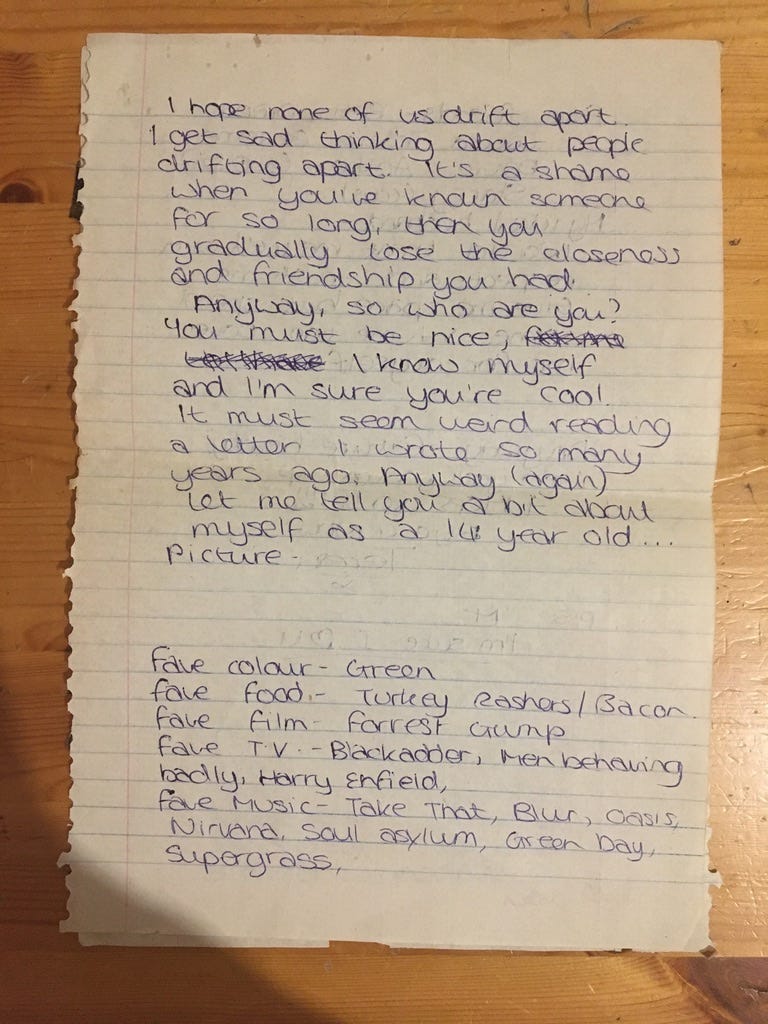 I hope none of us drift apart.
I get sad thinking about people
drifting apart. It's a shame
when you've known someone
for so long, then you
gradually lose the closeness
and friendship you had.
Anyway, so who are you?
You must be nice,
I know myself
and I'm sure you're cool.
It must seem weird reading
a letter I wrote so many
years ago. Anyway (again)
Let me tell you a bit about
myself as a 14 year old...
Picture -
fave colour - Green
fave food - Turkey Rashers/Bacon.
fave film - Forrest Gump
fave T.V. - Blackadder, Men behaving
badly, Harry Enfield,
fave Music - Take That, Blur, Oasis,
Nirvana, Soul asylum, Green Day,
Supergrass,